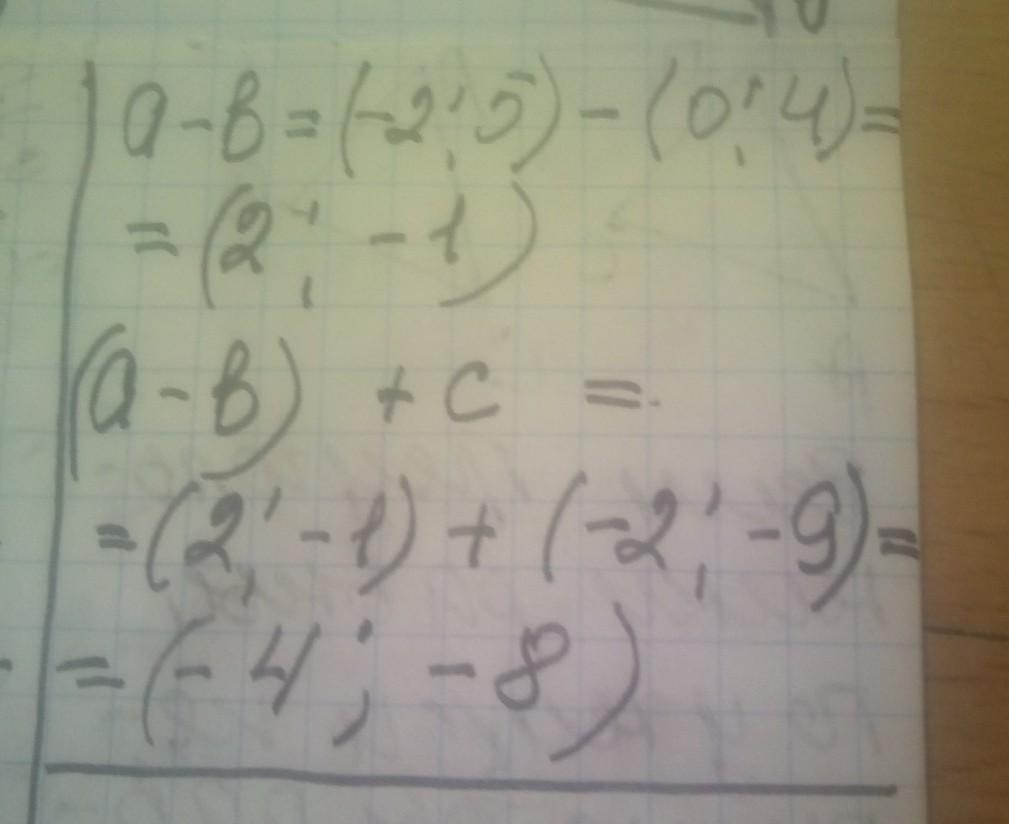 a-b=(-2;5)-(0;4)=
=(2;-1)
(a-b)+c=
=(2;-1)+(-2;-9)=
=(-4;-8)